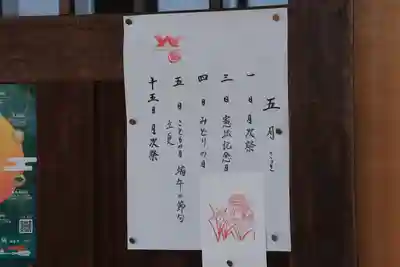 五月 さつき
一日 月次祭
三日 憲法記念日
四日 みどりの日
五日 こどもの日 端午の節句
立夏
十五日 月次祭